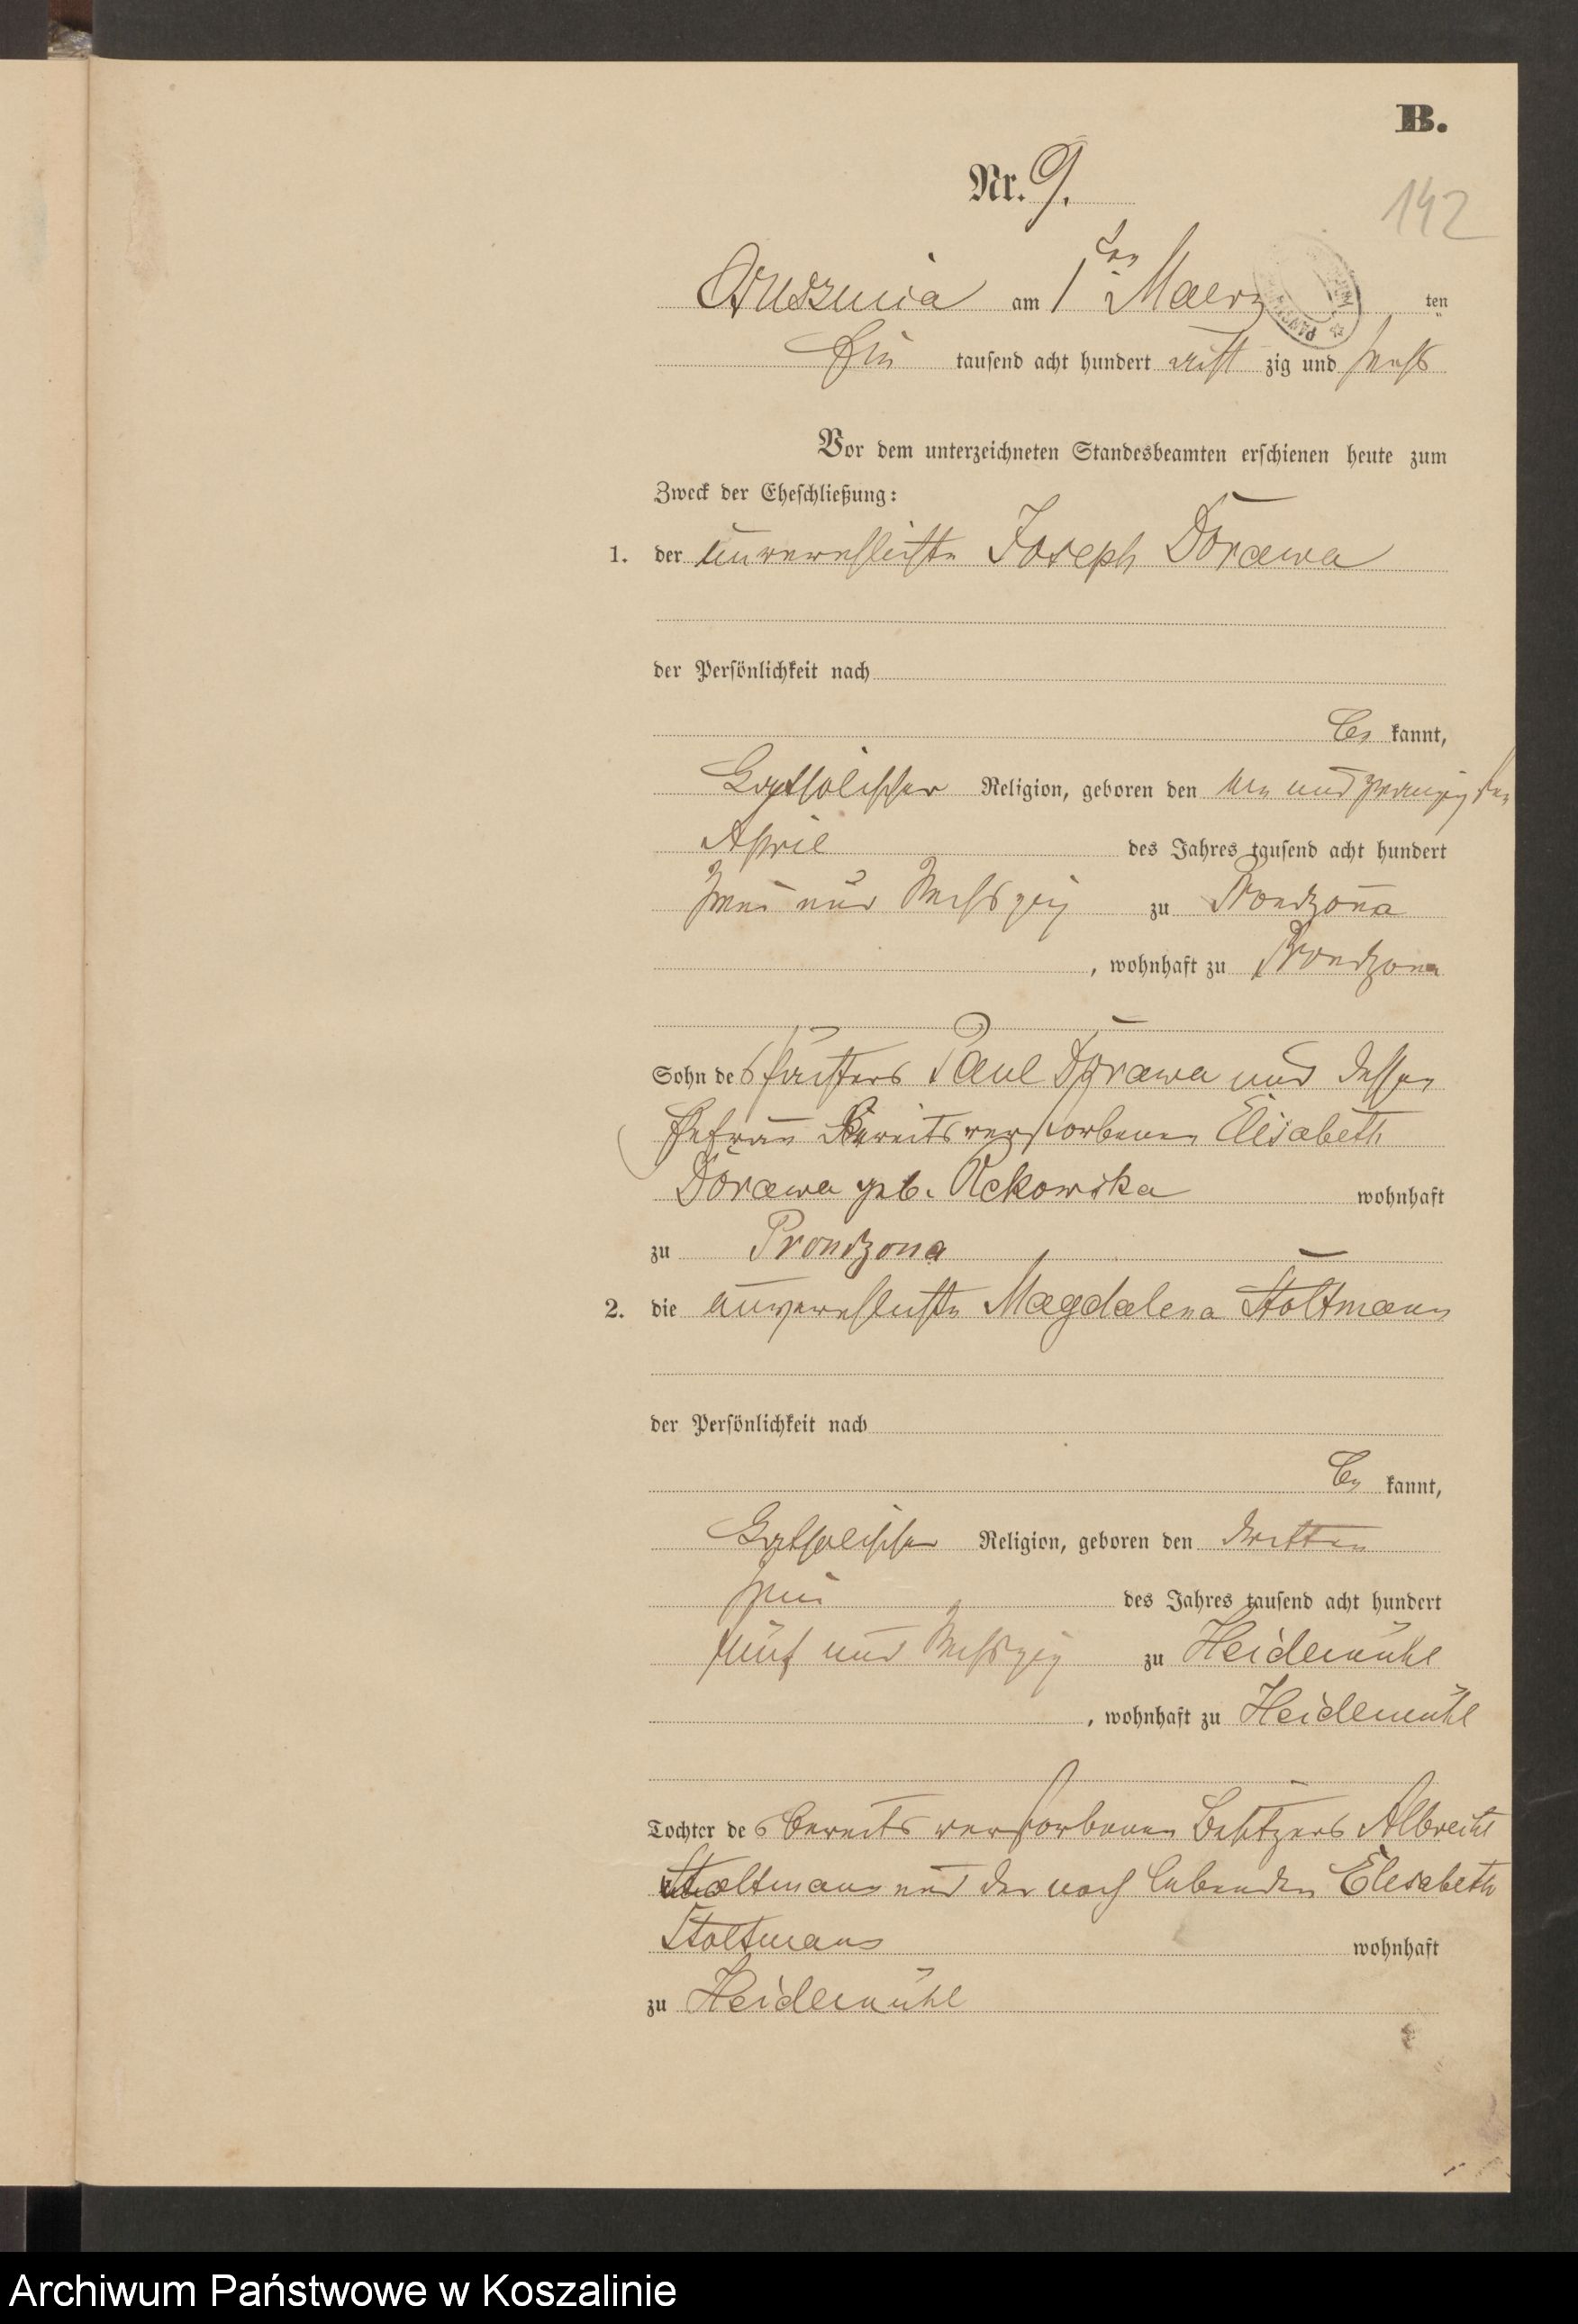 B.
Nr. 9.
142
am 1ten Maerz ten
Ein tausend acht hundert acht zig und sechs
Vor dem unterzeichneten Standesbeamten erschienen heute zum
Zweck der Eheschließung:
1. der unverehelichte Joseph Dorawa
der Persönlichkeit nach
be kannt,
Catholischer Religion, geboren den und zwanzigsten
April des Jahres tausend acht hundert
zwei und Sechszig zu Prondzona
, wohnhaft zu Prondzona
Sohn des Paul Dorawa und dessen
Ehefrau Bereits verstorbenen Elisabeth
Dorawa geb. wohnhaft
zu Prondzona
2. die unverehelichte Magdalena Stoltmann
der Persönlichkeit nach
be kannt,
Catholischer Religion, geboren den dritten
des Jahres tausend acht hundert
fünf und Sechszig zu Heidemühl
, wohnhaft zu Heidemühl
Tochter des bereits verstorbenen Besitzers Albrecht
Stoltmann und der noch lebenden Elisabeth
Stoltmann wohnhaft
zu Heidemühl
Archiwum Państwowe w Koszalinie